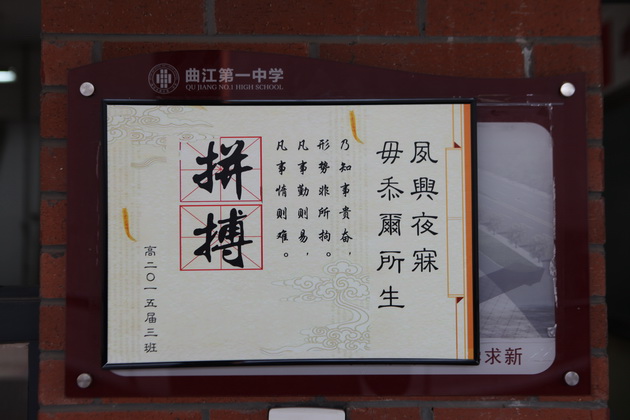 曲江第一中学
QU JIANG NO.1 HIGH SCHOOL
夙興夜寐
毋忝爾所生
乃知事貴奋，
形勢非所拘。
凡事勤則易，
凡事惰則难。
拼搏
高二〇一五届三班
求新